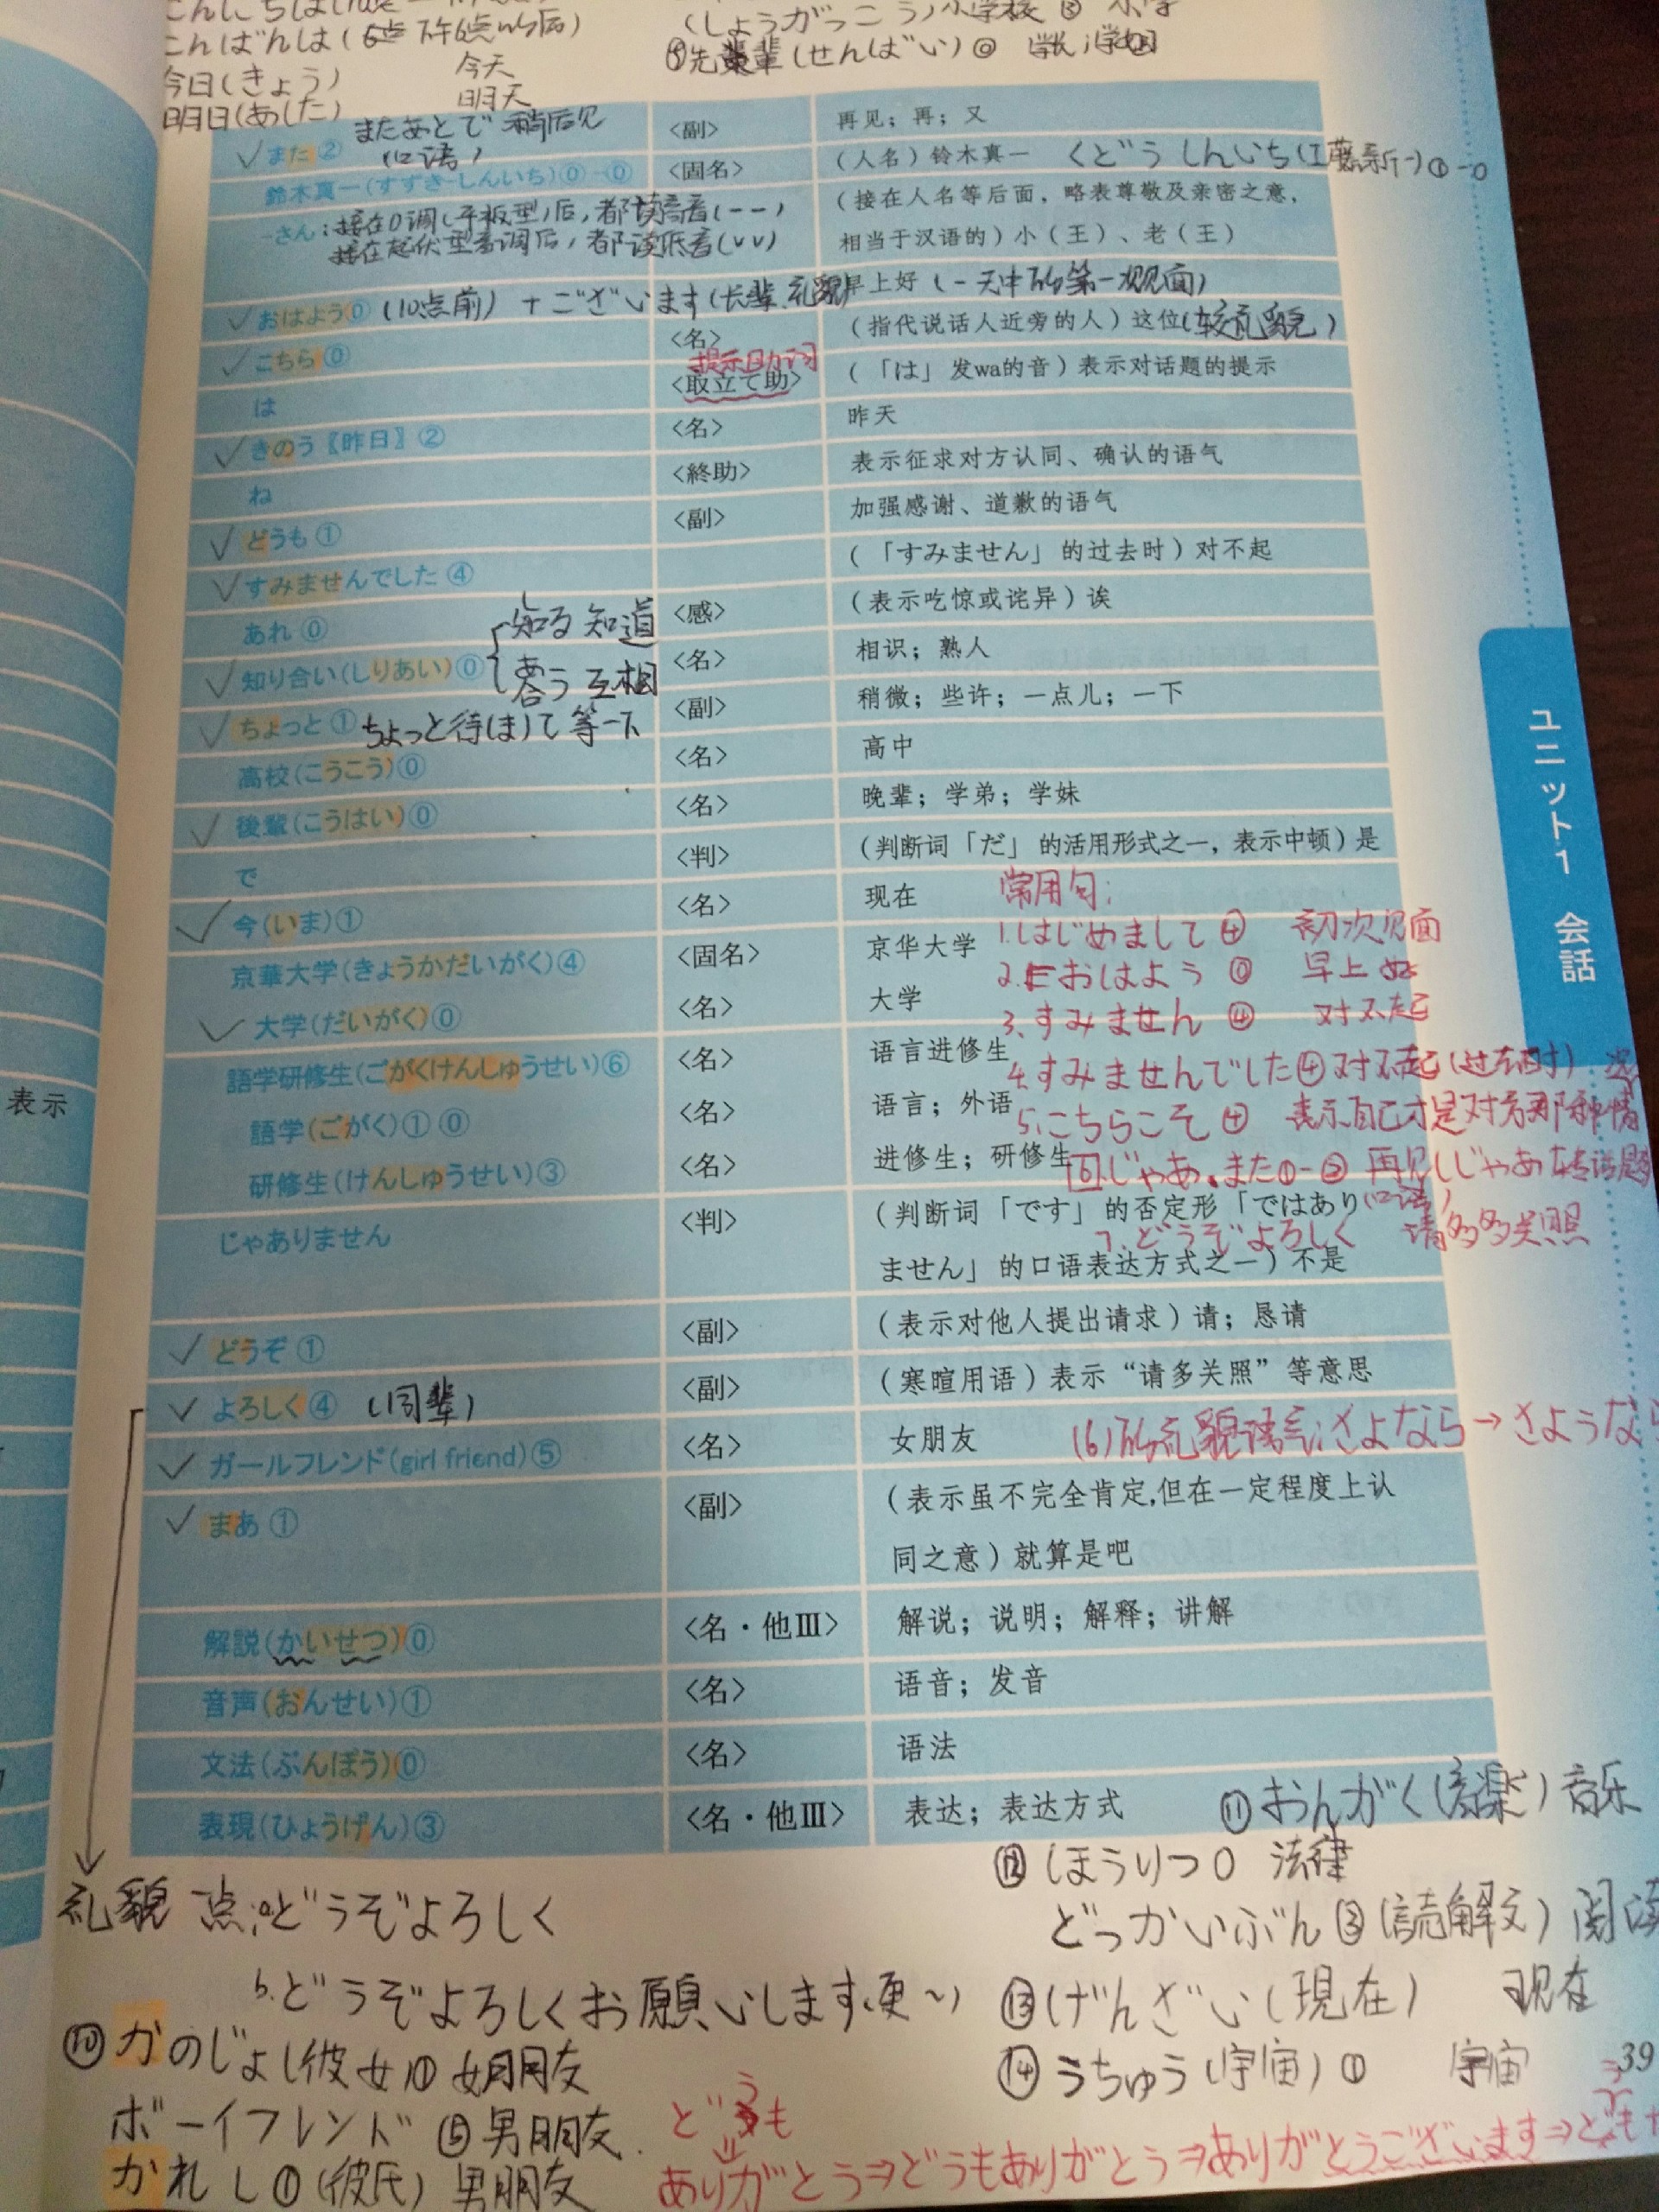 こんばんは(6点 下午6点以后)
(しょうがっこう)小学校 ③ 小学
⑨先輩(せんぱい)⓪ 学长;学姐
今日(きょう) 今天
明日(あした) 明天
またあとで 稍后见
(口语)
✓また② 〈副〉 再见；再；又
鈴木真一(すずき-しんいち)⓪-⓪ 〈固名〉 (人名)铃木真一 くどう しんいち(工藤新一)①-⓪
-さん :接在0调(平板型)后,都读高音(--) (接在人名等后面，略表尊敬及亲密之意，
接在起伏型音调后,都读低音(vv) 相当于汉语的)小(王)、老(王)
✓おはよう⓪ (10点前) +ございます(长辈,礼貌) 早上好 (一天中的第一次见面)
✓こちら⓪ 〈名〉 (指代说话人近旁的人)这位(较礼貌)
提示助词
は 〈取立て助〉 (「は」发wa的音)表示对话题的提示
✓きのう〖昨日〗② 〈名〉 昨天
ね 〈終助〉 表示征求对方认同、确认的语气
✓どうも① 〈副〉 加强感谢、道歉的语气
✓すみませんでした④ (「すみません」的过去时)对不起
あれ⓪ 〈感〉 (表示吃惊或诧异)诶
知る 知道
✓知り合い(しりあい)⓪ 〈名〉 相识；熟人
合う 互相
✓ちょっと① ちょっと待(ま)て 等一下 〈副〉 稍微；些许；一点儿；一下
高校(こうこう)⓪ 〈名〉 高中
✓後輩(こうはい)⓪ 〈名〉 晚辈；学弟；学妹
で 〈判〉 (判断词「だ」的活用形式之一，表示中顿)是
✓今(いま)① 〈名〉 现在
京華大学(きょうかだいがく)④ 〈固名〉 京华大学
✓大学(だいがく)⓪ 〈名〉 大学
語学研修生(ごがくけんしゅうせい)⑥ 〈名〉 语言进修生
語学(ごがく)①⓪ 〈名〉 语言；外语
研修生(けんしゅうせい)③ 〈名〉 进修生；研修生
じゃありません 〈判〉 (判断词「です」的否定形「ではあり
ません」的口语表达方式之一)不是
常用句:
1.はじめまして④ 初次见面
2.おはよう⓪ 早上好
3.すみません④ 对不起
4.すみませんでした④对不起(过去时)
5.こちらこそ④ 表示自己才是对方那种情
6.じゃあ、また①-② 再见(じゃあ转话题
(口语)
7.どうぞよろしく 请多多关照
✓どうぞ① 〈副〉 (表示对他人提出请求)请；恳请
✓よろしく④ (同辈) 〈副〉 (寒暄用语)表示“请多关照”等意思
✓ガールフレンド(girl friend)⑤ 〈名〉 女朋友
(6)的礼貌语气:さよなら→さような
✓まあ① 〈副〉 (表示虽不完全肯定,但在一定程度上认
同之意)就算是吧
解説(かいせつ)⓪ 〈名・他Ⅲ〉 解说；说明；解释；讲解
音声(おんせい)① 〈名〉 语音；发音
文法(ぶんぽう)⓪ 〈名〉 语法
表現(ひょうげん)③ 〈名・他Ⅲ〉 表达；表达方式
礼貌 点:a.どうぞよろしく
b.どうぞよろしくお願いします,更~)
⑩かのじょ(彼女)① 女朋友
ボーイフレンド⑤男朋友.
かれし①(彼氏) 男朋友
⑪おんがく(音楽) 音乐
⑫ほうりつ0 法律
どっかいぶん③(読解文) 阅读
⑬げんざい(現在) 现在
⑭うちゅう(宇宙)① 宇宙
どうも
ありがとう⇒どうもありがとう⇒ありがとうございます⇒どうも
39
ユニット1 会話
表示